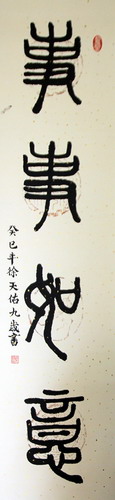 事事如意
癸巳年徐天佑九歲書